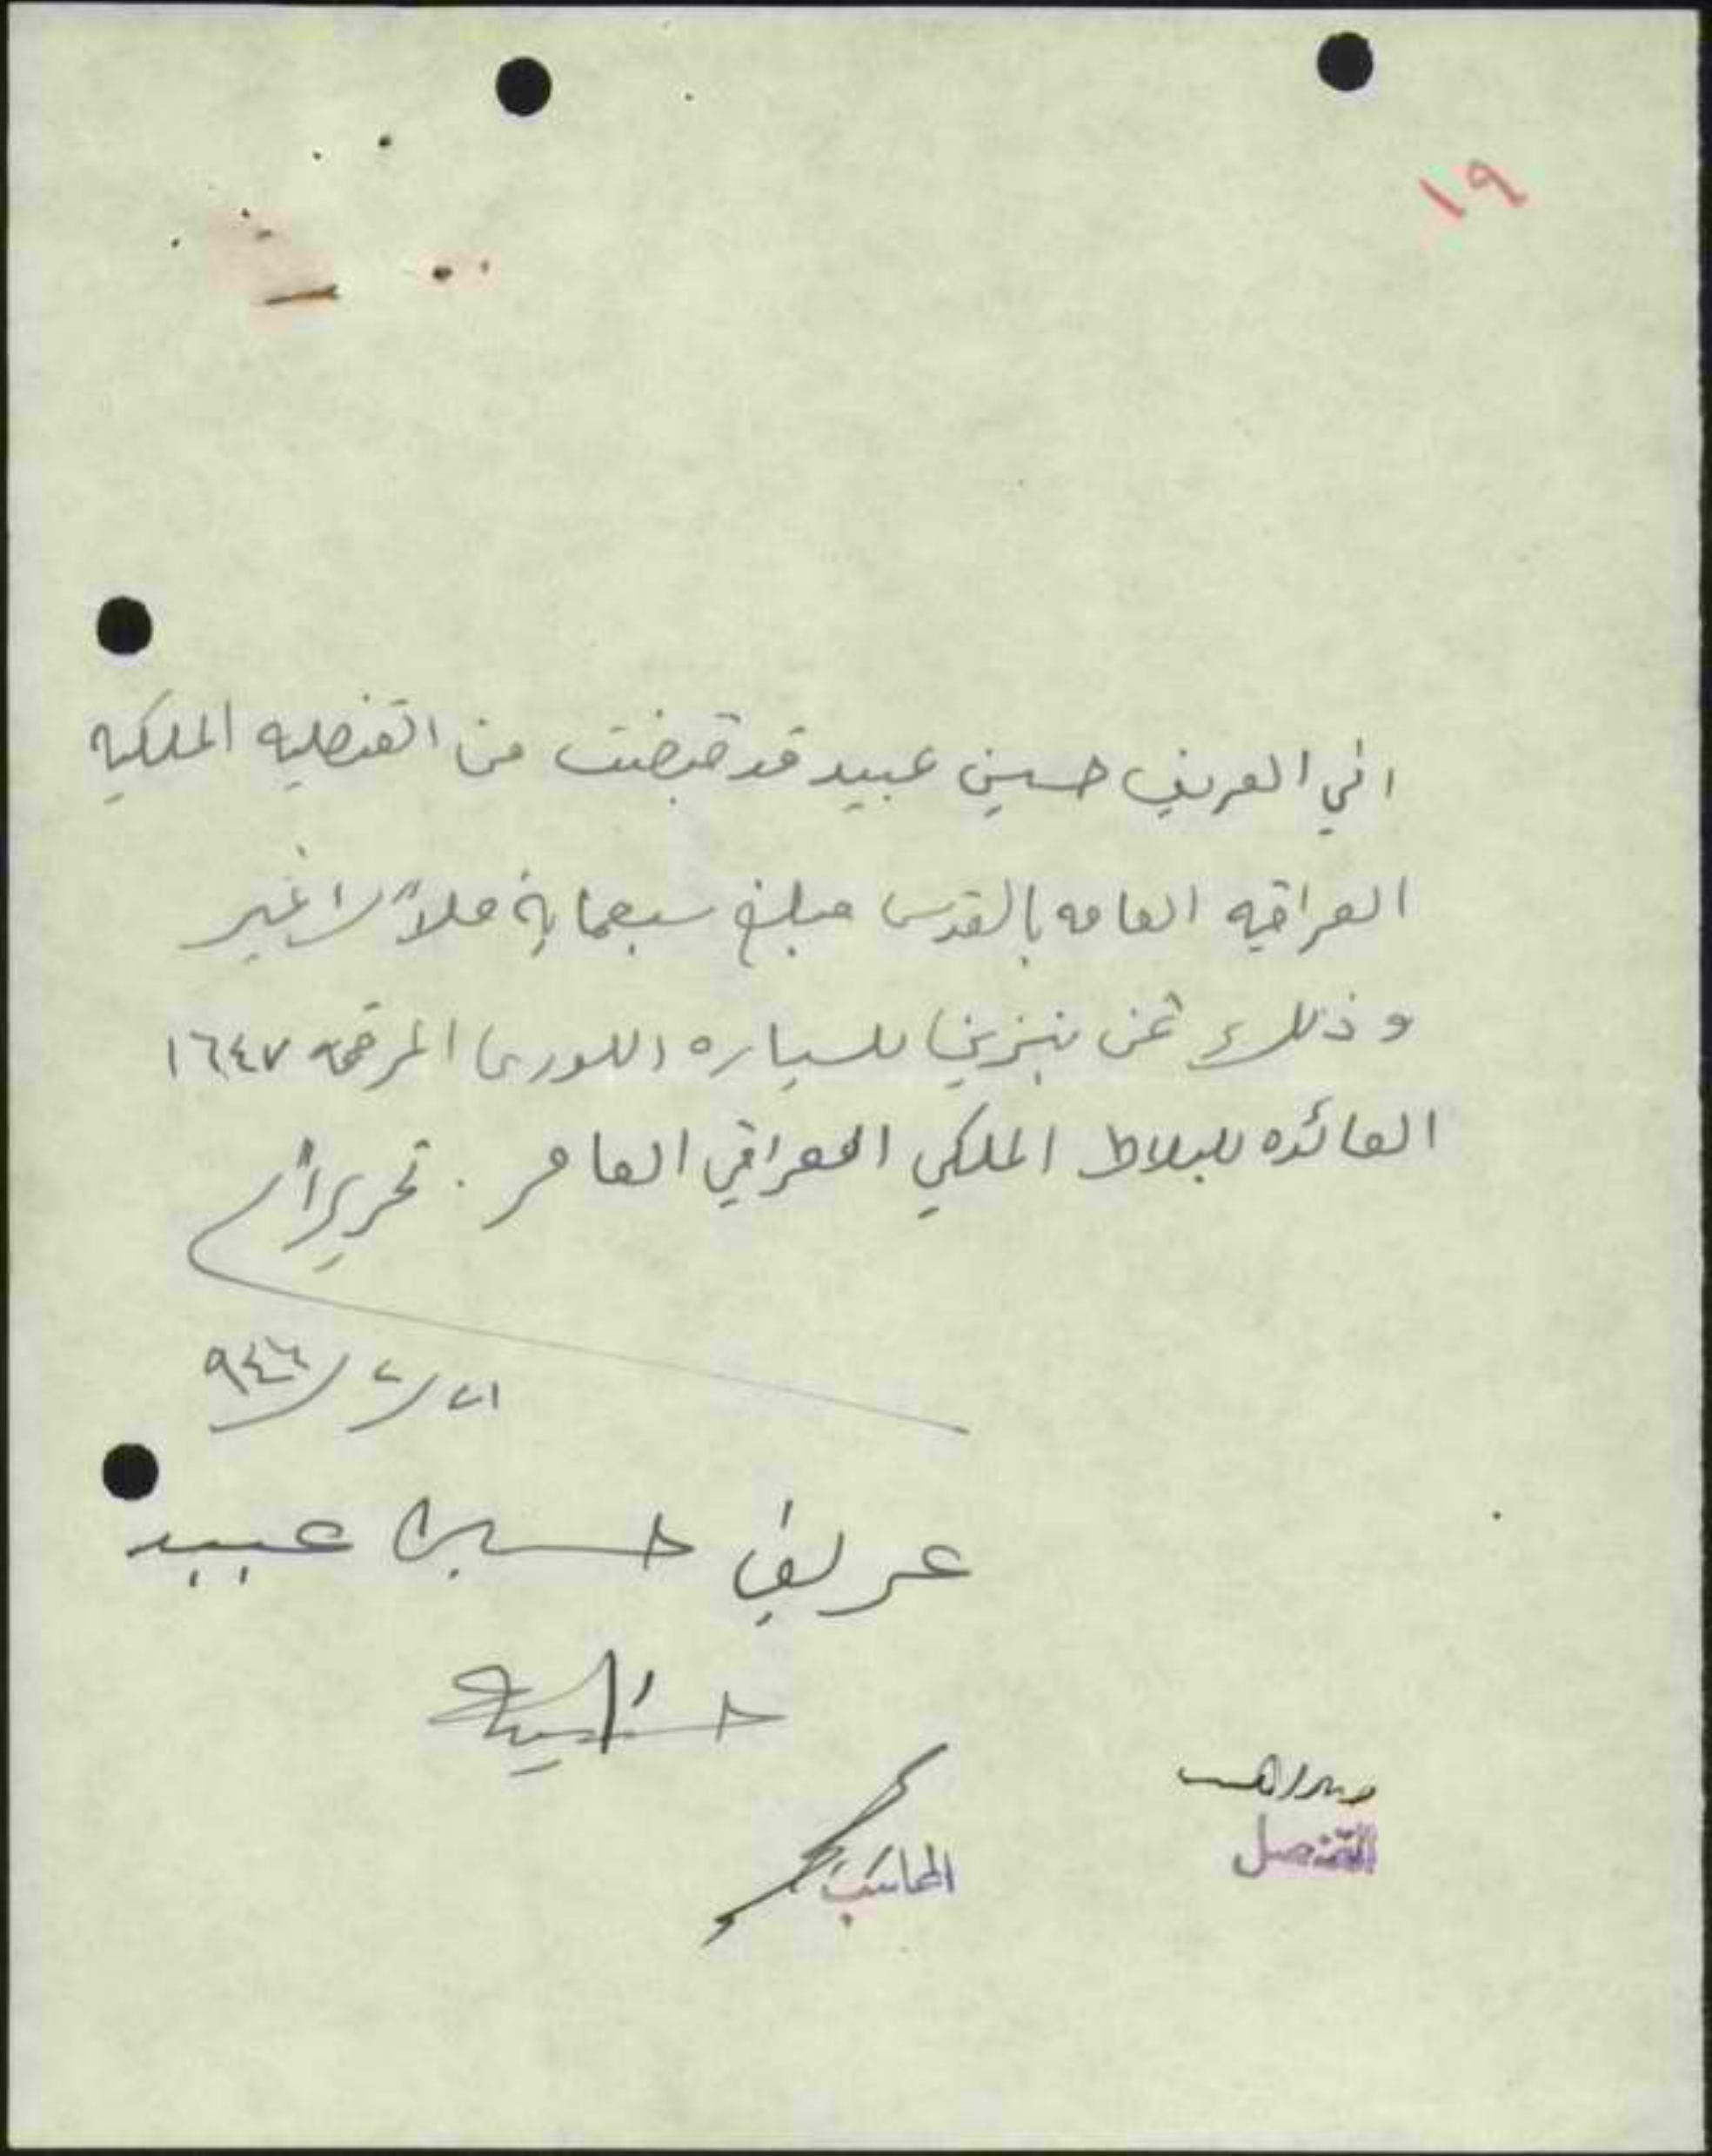 ١٩
اني العريف حسين عبيد قد قبضت من القنصليه الملكيه
العراقيه العامه بالقدس مبلغ سبعماية ملاً لا غير
وذلك ثمن بنزين للسياره اللوري المرقمه ١٦٤٧
العائده للبلاط الملكي العراقي العامر . تحريراً
٢١/٢/٩٤٦
عريف حسين عبيد
المحاسب
القنصل